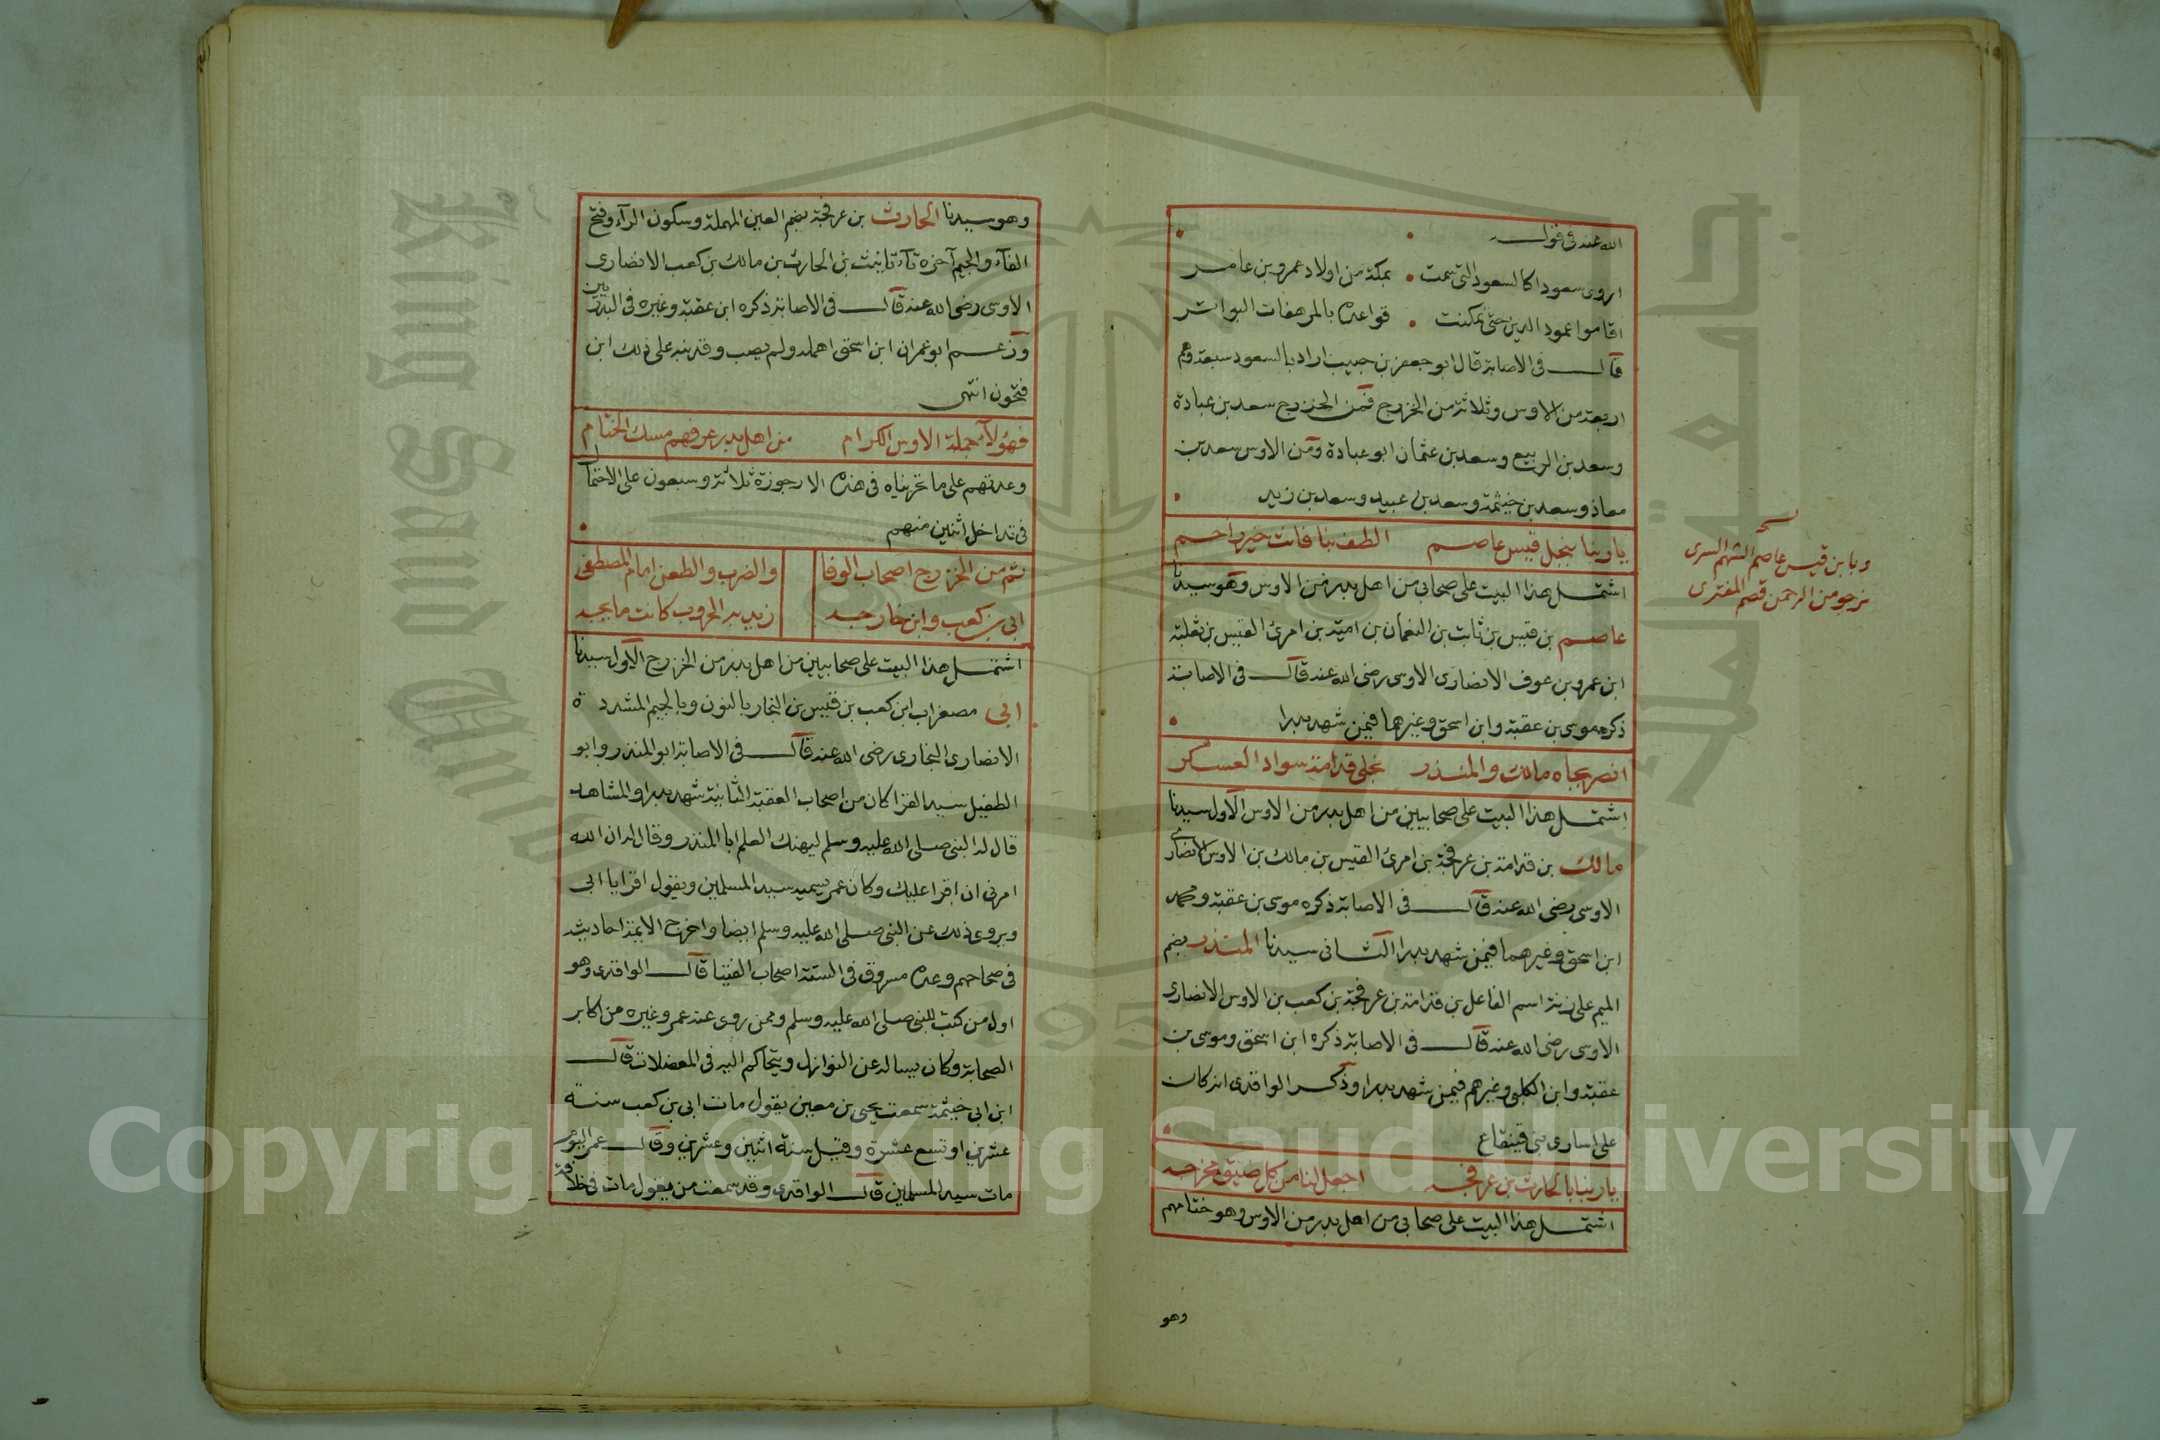 الله عنه في قوله
اروى سعودا كالسعود التي سمت . بمكة من اولاد عمرو بن عامر
اقاموا عمود الدين حتى تمكنت . قواعده بالمرهفات البواتر
قال في الاصابة قال ابو جعفر بن حبيب اراد بالسعود سبعة وهم
اربعة من الاوس وثلاثة من الخزرج فمن الخزرج سعد بن عبادة
وسعد بن الربيع وسعد بن عثمان ابو عبادة ومن الاوس سعد بن
معاذ وسعد بن خيثمة وسعد بن عبيد وسعد بن زيد
يا ربنا بنجل قيس عاصم الطف بنا فانت خير راحم
اشتمل هذا البيت على صحابي من اهل بدر من الاوس وهو سيدنا
عاصم بن قيس بن ثابت بن النعمان بن امية بن امرئ القيس بن ثعلبة
ابن عمرو بن عوف الانصاري الاوسي رضي الله عنه قال في الاصابة
ذكره موسى بن عقبة وابن اسحق وغيرهما فيمن شهد بدرا
انصر بجاه مالك والمنذر نجلي قدامة سواد العسكر
اشتمل هذا البيت على صحابيين من اهل بدر من الاوس الاول سيدنا
مالك بن قدامة بن عرفجة بن امرئ القيس بن مالك بن الاوس الانصاري
الاوسي رضي الله عنه قال في الاصابة ذكره موسى بن عقبة ومحمد
ابن اسحق وغيرهما فيمن شهد بدرا الثاني سيدنا المنذر بضم
الميم على زنة اسم الفاعل بن قدامة بن عرفجة بن كعب بن الاوس الانصاري
الاوسي رضي الله عنه قال في الاصابة ذكره ابن اسحق وموسى بن
عقبة وابن الكلبي وغيرهم فيمن شهد بدرا وذكر الواقدي انه كان
على اسارى بني قينقاع
يا ربنا بالحارث بن عرفجه اجعل لنا من كل ضيق مخرجه
اشتمل هذا البيت على صحابي من اهل بدر من الاوس وهو ختامهم
وهو
نسخه
وبابن قيس عاصم الشهم السري
نرجو من الرحمن قصم المفتري
وهو سيدنا الحارث بن عرفجة بضم العين المهملة وسكون الراء وفتح
الفاء والجيم آخره تاء تانيث بن الحارث بن مالك بن كعب الانصاري
الاوسي رضي الله عنه قال في الاصابة ذكره ابن عقبة وغيره في البدريين
وزعم ابو عمر ان ابن اسحق اهمله ولم يصب وقد نبه على ذلك ابن
فتحون انتهى
فهؤلاء جملة الاوس الكرام من اهل بدر عرفهم مسك الختام
وعدتهم على ما حررناه في هذه الارجوزة ثلاثة وسبعون على الاختلاف
في تداخل اثنين منهم
ثم من الخزرج اصحاب الوفا والضرب والطعن امام المصطفى
ابي بن كعب وابن خارجه زيد به الحروب كانت مايجه
اشتمل هذا البيت على صحابيين من اهل بدر من الخزرج الاول سيدنا
ابي مصغر اب ابن كعب بن قيس بن النجار بالنون وبالجيم المشددة
الانصاري النجاري رضي الله عنه قال في الاصابة ابو المنذر وابو
الطفيل سيد القرا كان من اصحاب العقبة الثانية شهد بدرا والمشاهد
قال له النبي صلى الله عليه وسلم ليهنك العلم ابا المنذر وقال له ان الله
امرني ان اقرا عليك وكان عمر يسميه سيد المسلمين ويقول اقرا يا ابي
ويروى ذلك عن النبي صلى الله عليه وسلم ايضا واخرج الايمة احاديثه
في صحاحهم وعده مسروق في الستة اصحاب الفتيا قال الواقدي وهو
اول من كتب للنبي صلى الله عليه وسلم وممن روى عنه عمر وغيره من اكابر
الصحابة وكان يساله عن النوازل ويتحاكم اليه في المعضلات قال
ابن ابي خيثمة سمعت يحيى بن معين يقول مات ابي بن كعب سنة
عشرين او تسع عشرة وقيل سنة اثنين وعشرين وقال عمر اليوم
مات سيد المسلمين قال الواقدي وقد سمعت من يقول مات في خلافة